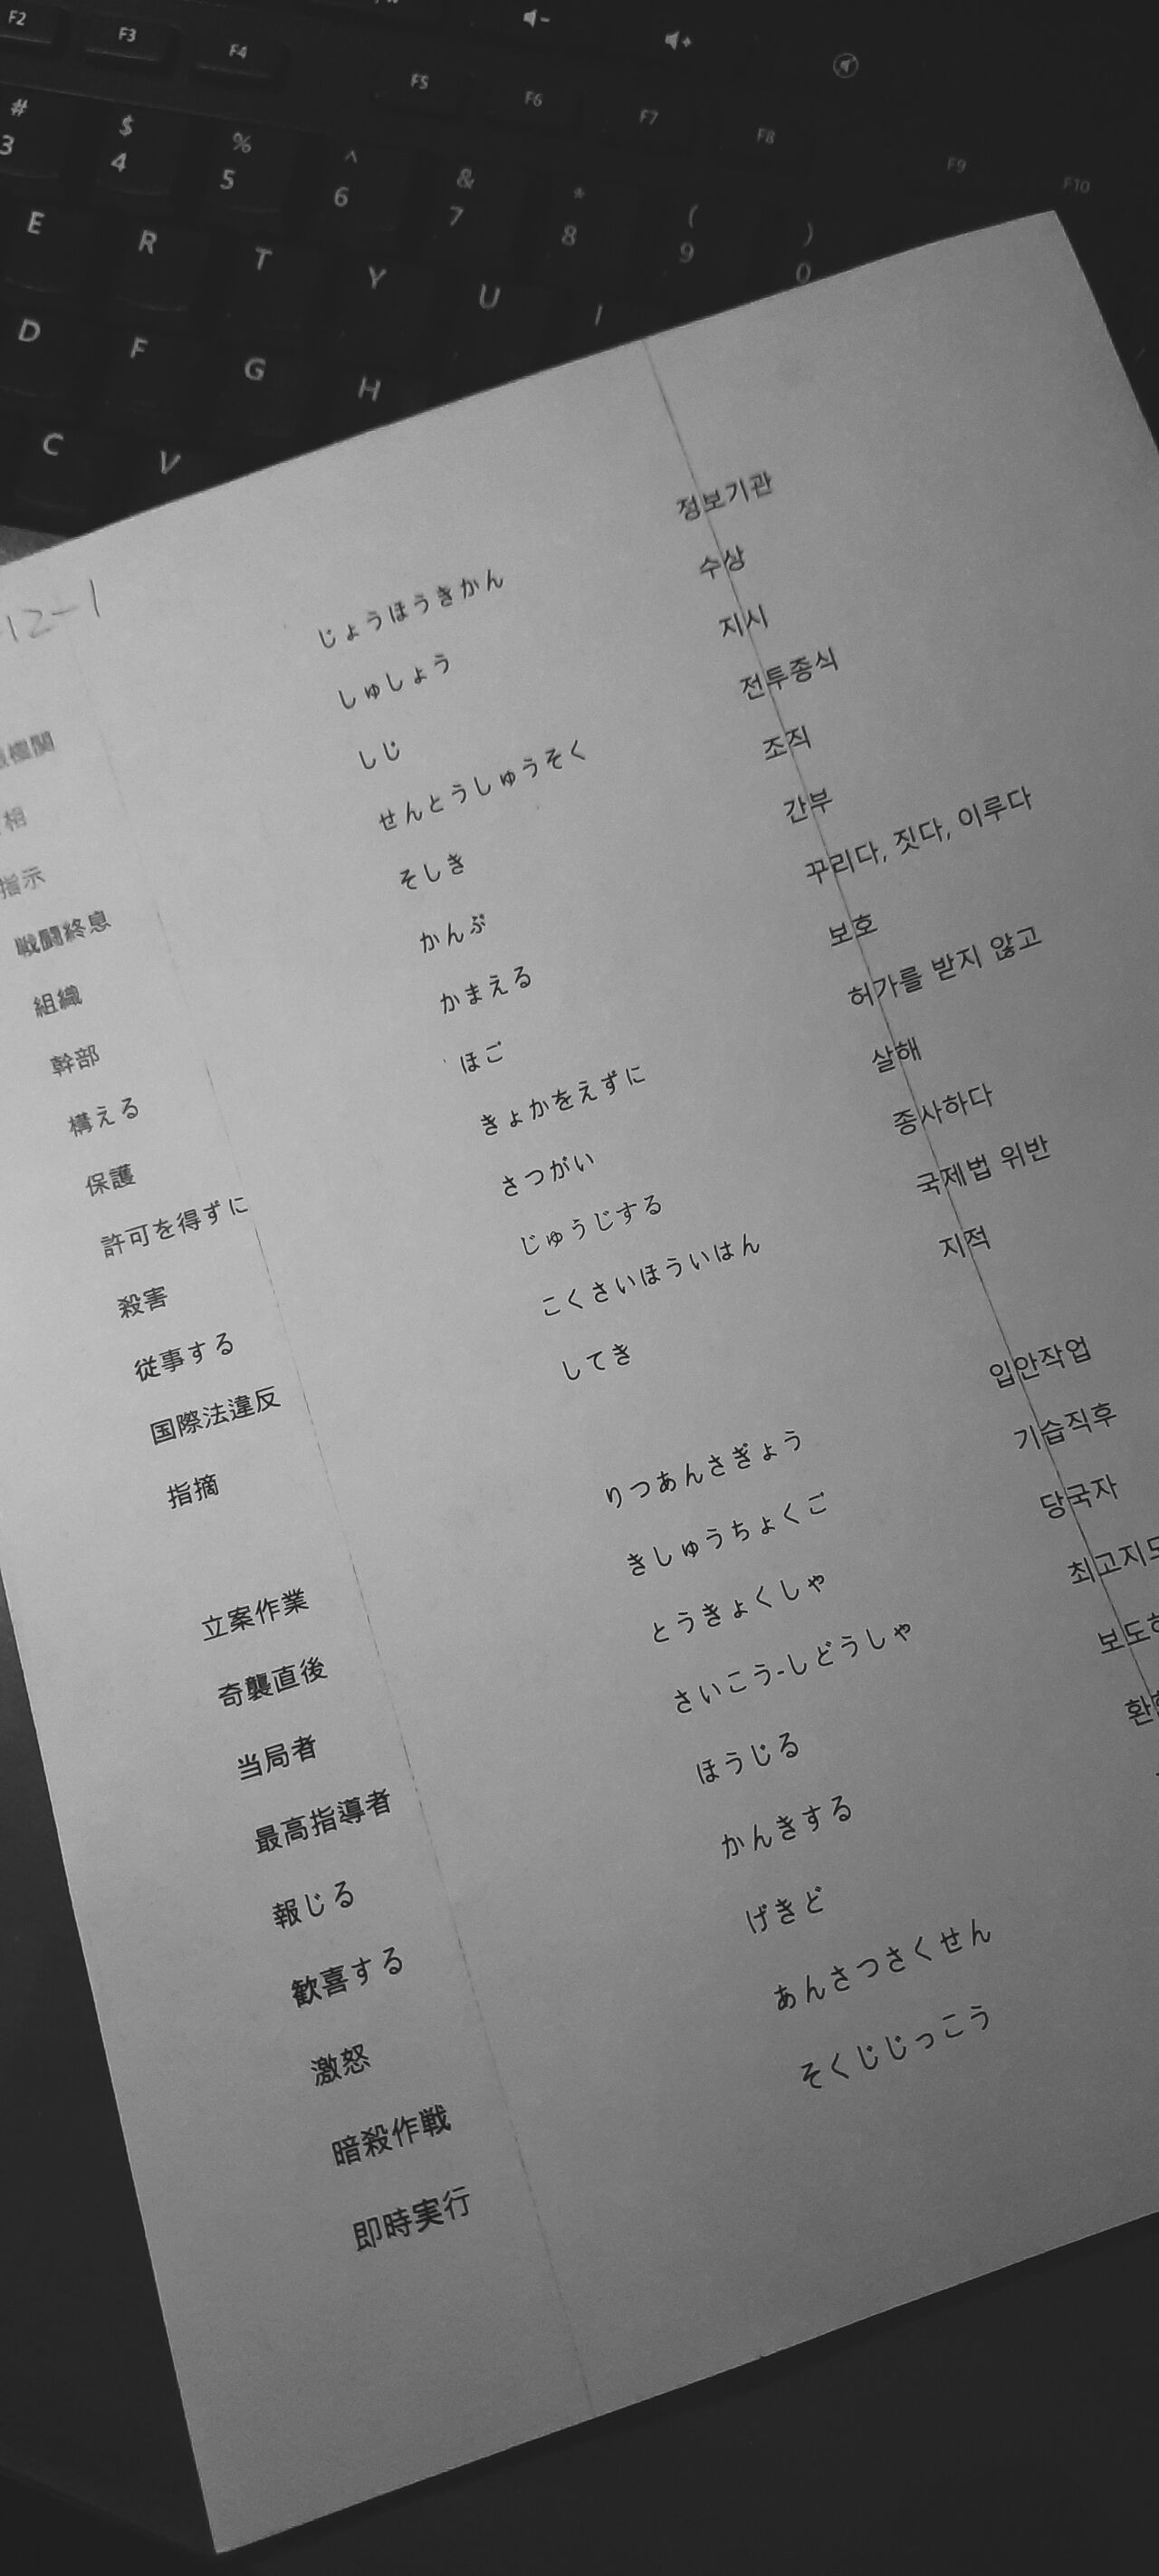 F2 F3 F4 F5 F6 F7 F8 F9 F10
# $ % ^ & * ( )
3 4 5 6 7 8 9 0
E R T Y U I
D F G H
C V
12-1
機関 じょうほうきかん 정보기관
相 しゅしょう 수상
指示 しじ 지시
戦闘終息 せんとうしゅうそく 전투종식
組織 そしき 조직
幹部 かんぶ 간부
構える かまえる 꾸리다, 짓다, 이루다
保護 ほご 보호
許可を得ずに きょかをえずに 허가를 받지 않고
殺害 さつがい 살해
従事する じゅうじする 종사하다
国際法違反 こくさいほういはん 국제법 위반
指摘 してき 지적
立案作業 りつあんさぎょう 입안작업
奇襲直後 きしゅうちょくご 기습직후
当局者 とうきょくしゃ 당국자
最高指導者 さいこう-しどうしゃ 최고지도
報じる ほうじる 보도하
歓喜する かんきする 환
激怒 げきど
暗殺作戦 あんさつさくせん
即時実行 そくじじっこう